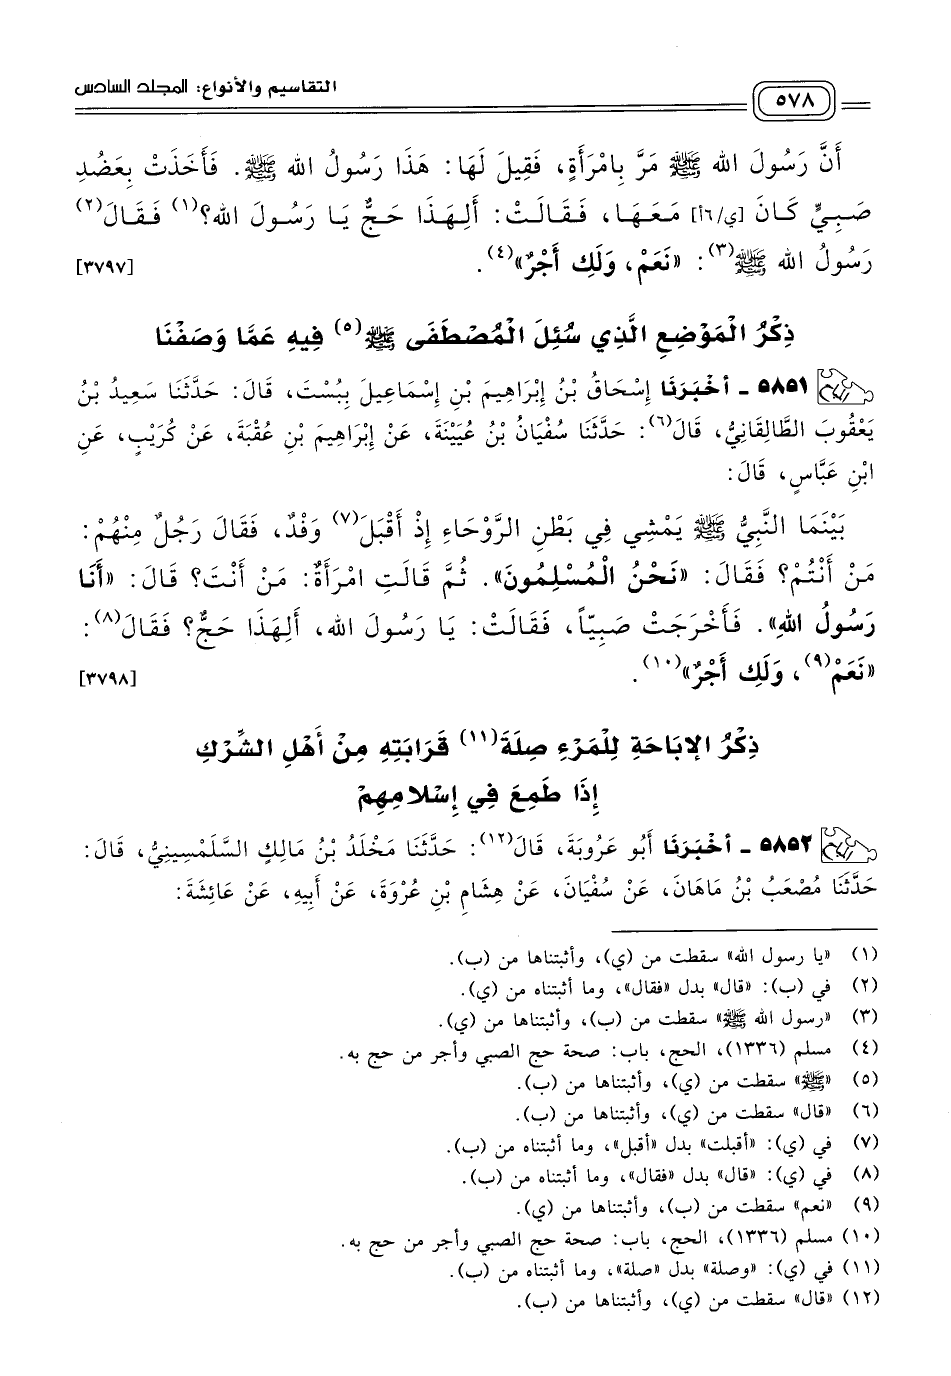 التقاسيم والأنواع: المجلد السادس
٥٧٨
أَنَّ رَسُولَ الله ﷺ مَرَّ بِامْرَأَةٍ، فَقِيلَ لَهَا: هَذَا رَسُولُ الله ﷺ. فَأَخَذَتْ بِعَضُدِ
صَبِيٍّ كَانَ [ي/٦أ] مَعَهَا، فَقَالَتْ: أَلِهَذَا حَجٌّ يَا رَسُولَ الله؟(١) فَقَالَ(٢)
رَسُولُ الله ﷺ(٣): «نَعَمْ، وَلَكِ أَجْرٌ»(٤). [٣٧٩٧]
ذِكْرُ الْمَوْضِعِ الَّذِي سُئِلَ الْمُصْطَفَى ﷺ(٥) فِيهِ عَمَّا وَصَفْنَا
٥٨٥١ ـ أَخْبَرَنَا إِسْحَاقُ بْنُ إِبْرَاهِيمَ بْنِ إِسْمَاعِيلَ بِبُسْتَ، قَالَ: حَدَّثَنَا سَعِيدُ بْنُ
يَعْقُوبَ الطَّالِقَانِيُّ، قَالَ(٦): حَدَّثَنَا سُفْيَانُ بْنُ عُيَيْنَةَ، عَنْ إِبْرَاهِيمَ بْنِ عُقْبَةَ، عَنْ كُرَيْبٍ، عَنِ
ابْنِ عَبَّاسٍ، قَالَ:
بَيْنَمَا النَّبِيُّ ﷺ يَمْشِي فِي بَطْنِ الرَّوْحَاءِ إِذْ أَقْبَلَ(٧) وَفْدٌ، فَقَالَ رَجُلٌ مِنْهُمْ:
مَنْ أَنْتُمْ؟ فَقَالَ: «نَحْنُ الْمُسْلِمُونَ». ثُمَّ قَالَتِ امْرَأَةٌ: مَنْ أَنْتَ؟ قَالَ: «أَنَا
رَسُولُ اللهِ». فَأَخْرَجَتْ صَبِيّاً، فَقَالَتْ: يَا رَسُولَ الله، أَلِهَذَا حَجٌّ؟ فَقَالَ(٨):
«نَعَمْ(٩)، وَلَكِ أَجْرٌ»(١٠). [٣٧٩٨]
ذِكْرُ الإِبَاحَةِ لِلْمَرْءِ صِلَةَ(١١) قَرَابَتِهِ مِنْ أَهْلِ الشِّرْكِ
إِذَا طَمِعَ فِي إِسْلَامِهِمْ
٥٨٥٢ ـ أَخْبَرَنَا أَبُو عَرُوبَةَ، قَالَ(١٢): حَدَّثَنَا مَخْلَدُ بْنُ مَالِكٍ السَّلَمْسِينِيُّ، قَالَ:
حَدَّثَنَا مُصْعَبُ بْنُ مَاهَانَ، عَنْ سُفْيَانَ، عَنْ هِشَامِ بْنِ عُرْوَةَ، عَنْ أَبِيهِ، عَنْ عَائِشَةَ:
(١) «يا رسول الله» سقطت من (ي)، وأثبتناها من (ب).
(٢) في (ب): «قال» بدل «فقال»، وما أثبتناه من (ي).
(٣) «رسول الله ﷺ» سقطت من (ب)، وأثبتناها من (ي).
(٤) مسلم (١٣٣٦)، الحج، باب: صحة حج الصبي وأجر من حج به.
(٥) «ﷺ» سقطت من (ي)، وأثبتناها من (ب).
(٦) «قال» سقطت من (ي)، وأثبتناها من (ب).
(٧) في (ي): «أقبلت» بدل «أقبل»، وما أثبتناه من (ب).
(٨) في (ي): «قال» بدل «فقال»، وما أثبتناه من (ب).
(٩) «نعم» سقطت من (ب)، وأثبتناها من (ي).
(١٠) مسلم (١٣٣٦)، الحج، باب: صحة حج الصبي وأجر من حج به.
(١١) في (ي): «وصلة» بدل «صلة»، وما أثبتناه من (ب).
(١٢) «قال» سقطت من (ي)، وأثبتناها من (ب).